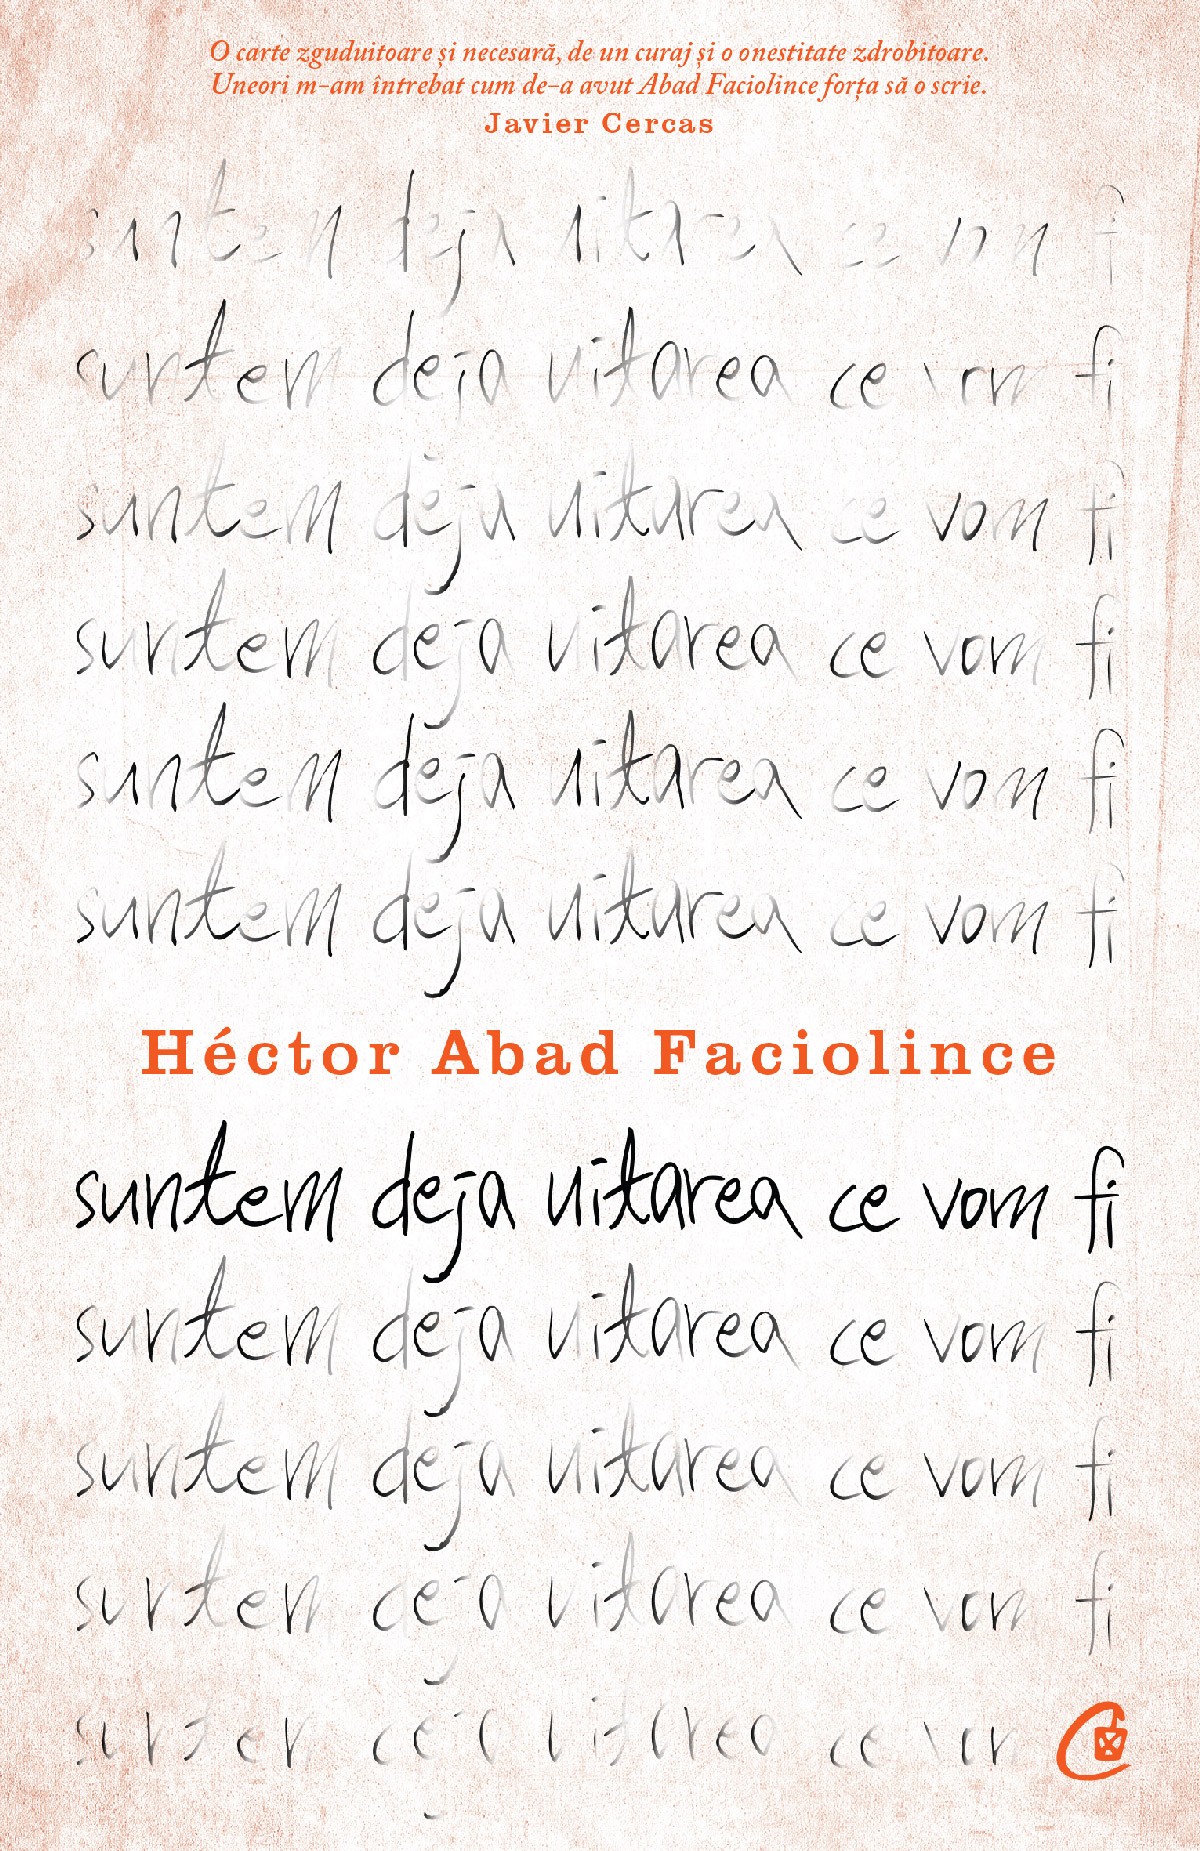 O carte zguduitoare și necesară, de un curaj și o onestitate zdrobitoare.
Uneori m-am întrebat cum de-a avut Abad Faciolince forța să o scrie.
Javier Cercas
suntem deja uitarea ce vom fi
suntem deja uitarea ce vom fi
suntem deja uitarea ce vom fi
suntem deja uitarea ce vom fi
suntem deja uitarea ce vom fi
suntem deja uitarea ce vom fi
Héctor Abad Faciolince
suntem deja uitarea ce vom fi
suntem deja uitarea ce vom fi
suntem deja uitarea ce vom fi
suntem deja uitarea ce vom fi
suntem deja uitarea ce vom